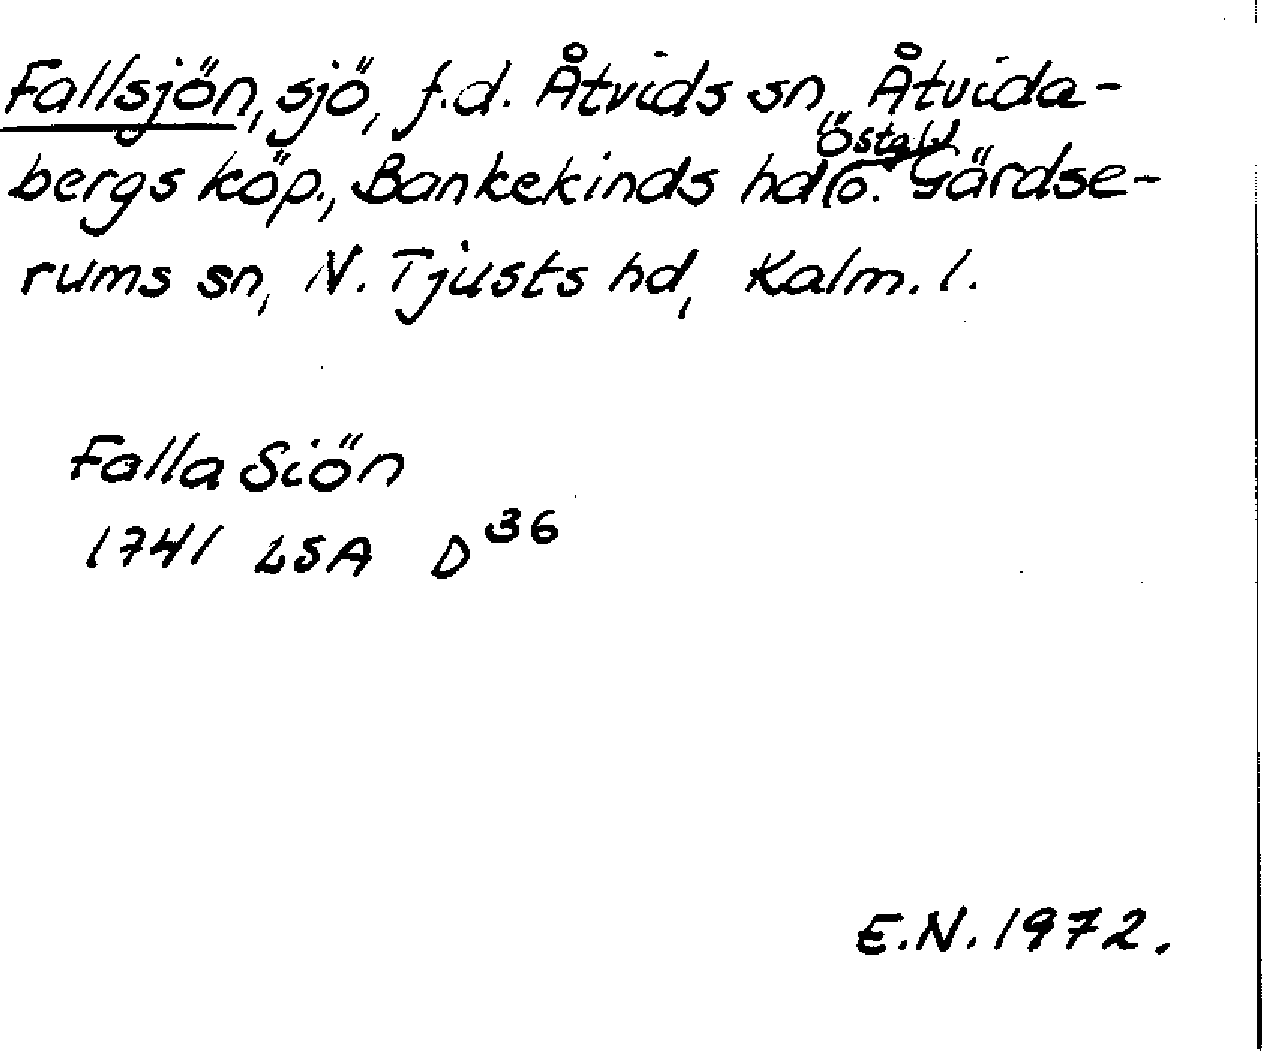 Fallsjön, sjö, f.d. Åtvids sn, Åtvida-
bergs köp., Bankekinds hd, Östg. l. o. Gärdse-
rums sn, N. Tjusts hd, Kalm. l.
Falla Siön
1741 LSA D 36
E.N. 1972.